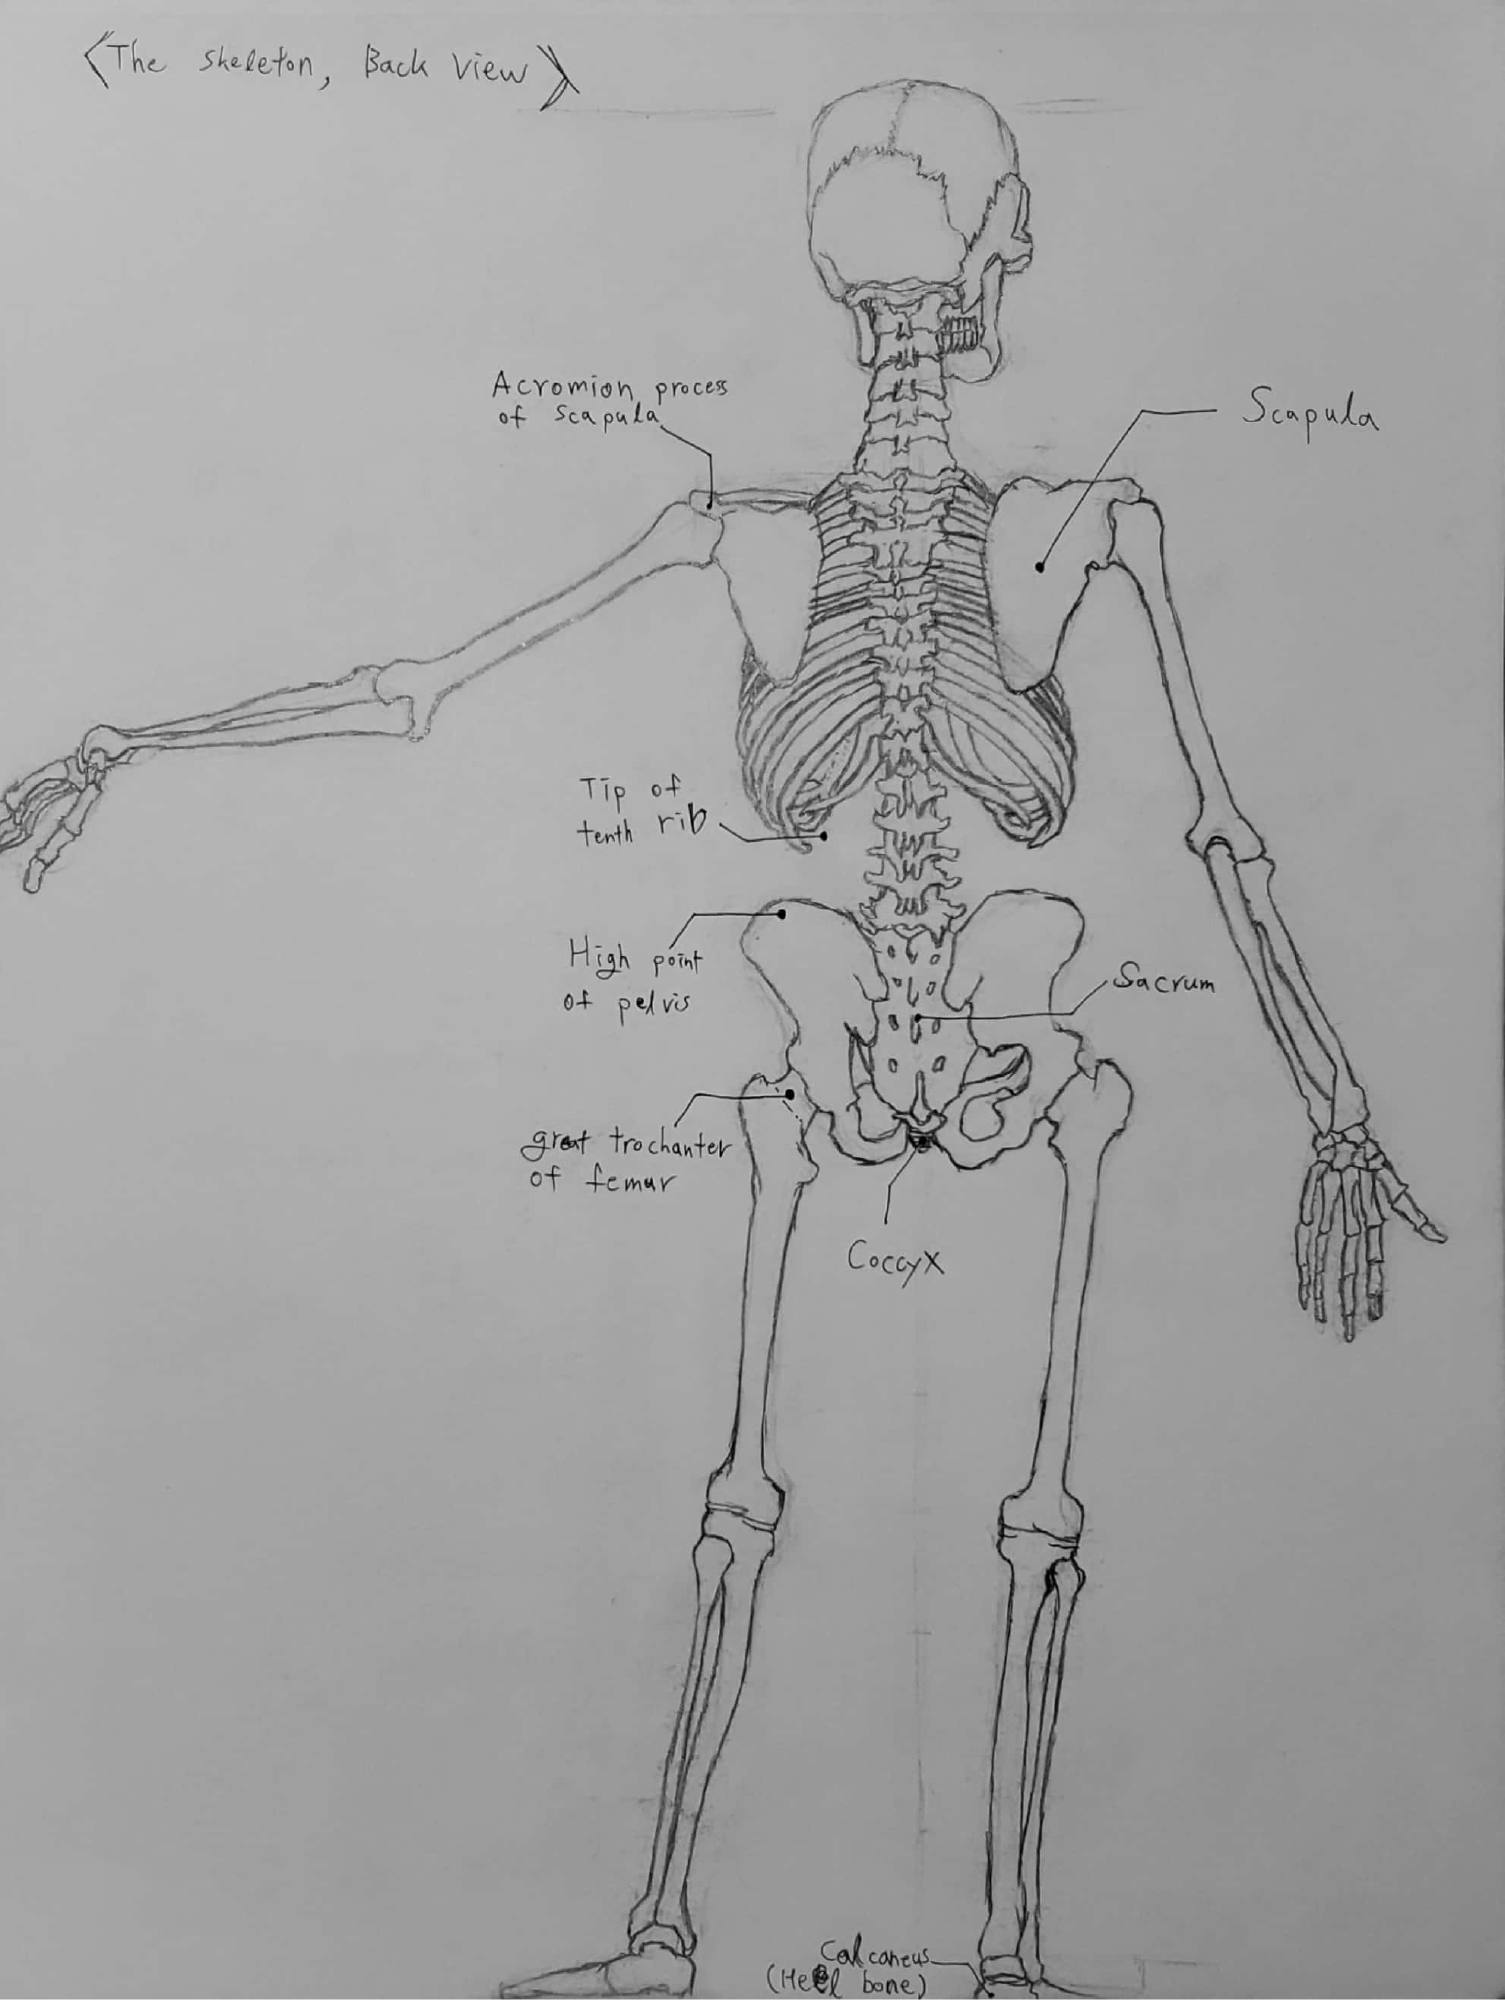 <The Skeleton, Back View>
Acromion process
of scapula
Scapula
Tip of
tenth rib
High point
of pelvis
Sacrum
great trochanter
of femur
Coccyx
Calcaneus
(Heel bone)